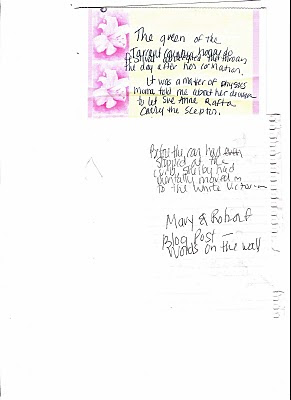 The queen of the
Tarrant County
the day after her coronation.
It was a matter of physics
Mama told me about her decision
to let Sue Anne
carry the scepter.
Before the car had even
stopped at the
curb, Shelby had
mentally moved in
to the white Victorian
Mary & Robert
Blog Post —
Words on the wall